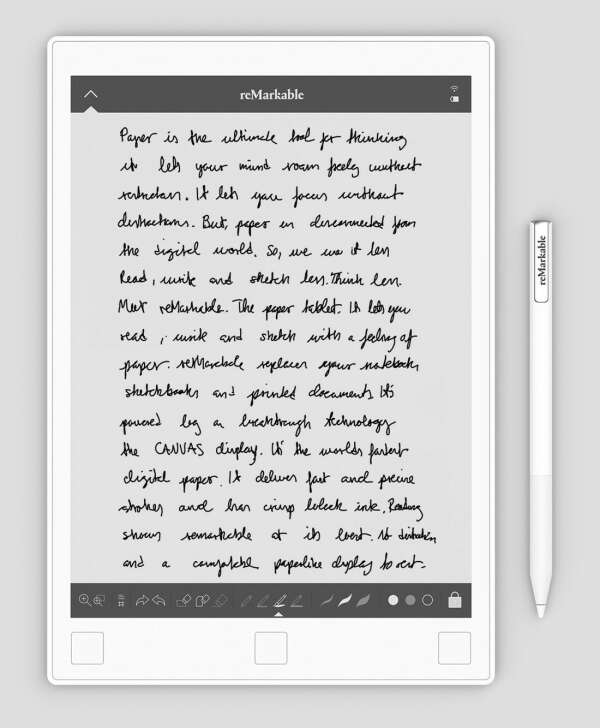 reMarkable
Paper is the ultimate tool for thinking
it lets your mind roam freely without
restrictions. It lets you focus without
distractions. But, paper is disconnected from
the digital world. So, we use it less
Read, write and sketch less. Think less.
Meet reMarkable. The paper tablet. It lets you
read, write and sketch with a feeling of
paper. reMarkable replaces your notebooks,
sketchbooks and printed documents. It's
powered by a breakthrough technology
the CANVAS display. It's the world's fastest
digital paper. It delivers fast and precise
strokes and has crisp black ink. Reading
shows remarkable at its best. No distraction
and a comfortable paperlike display to rest.
reMarkable